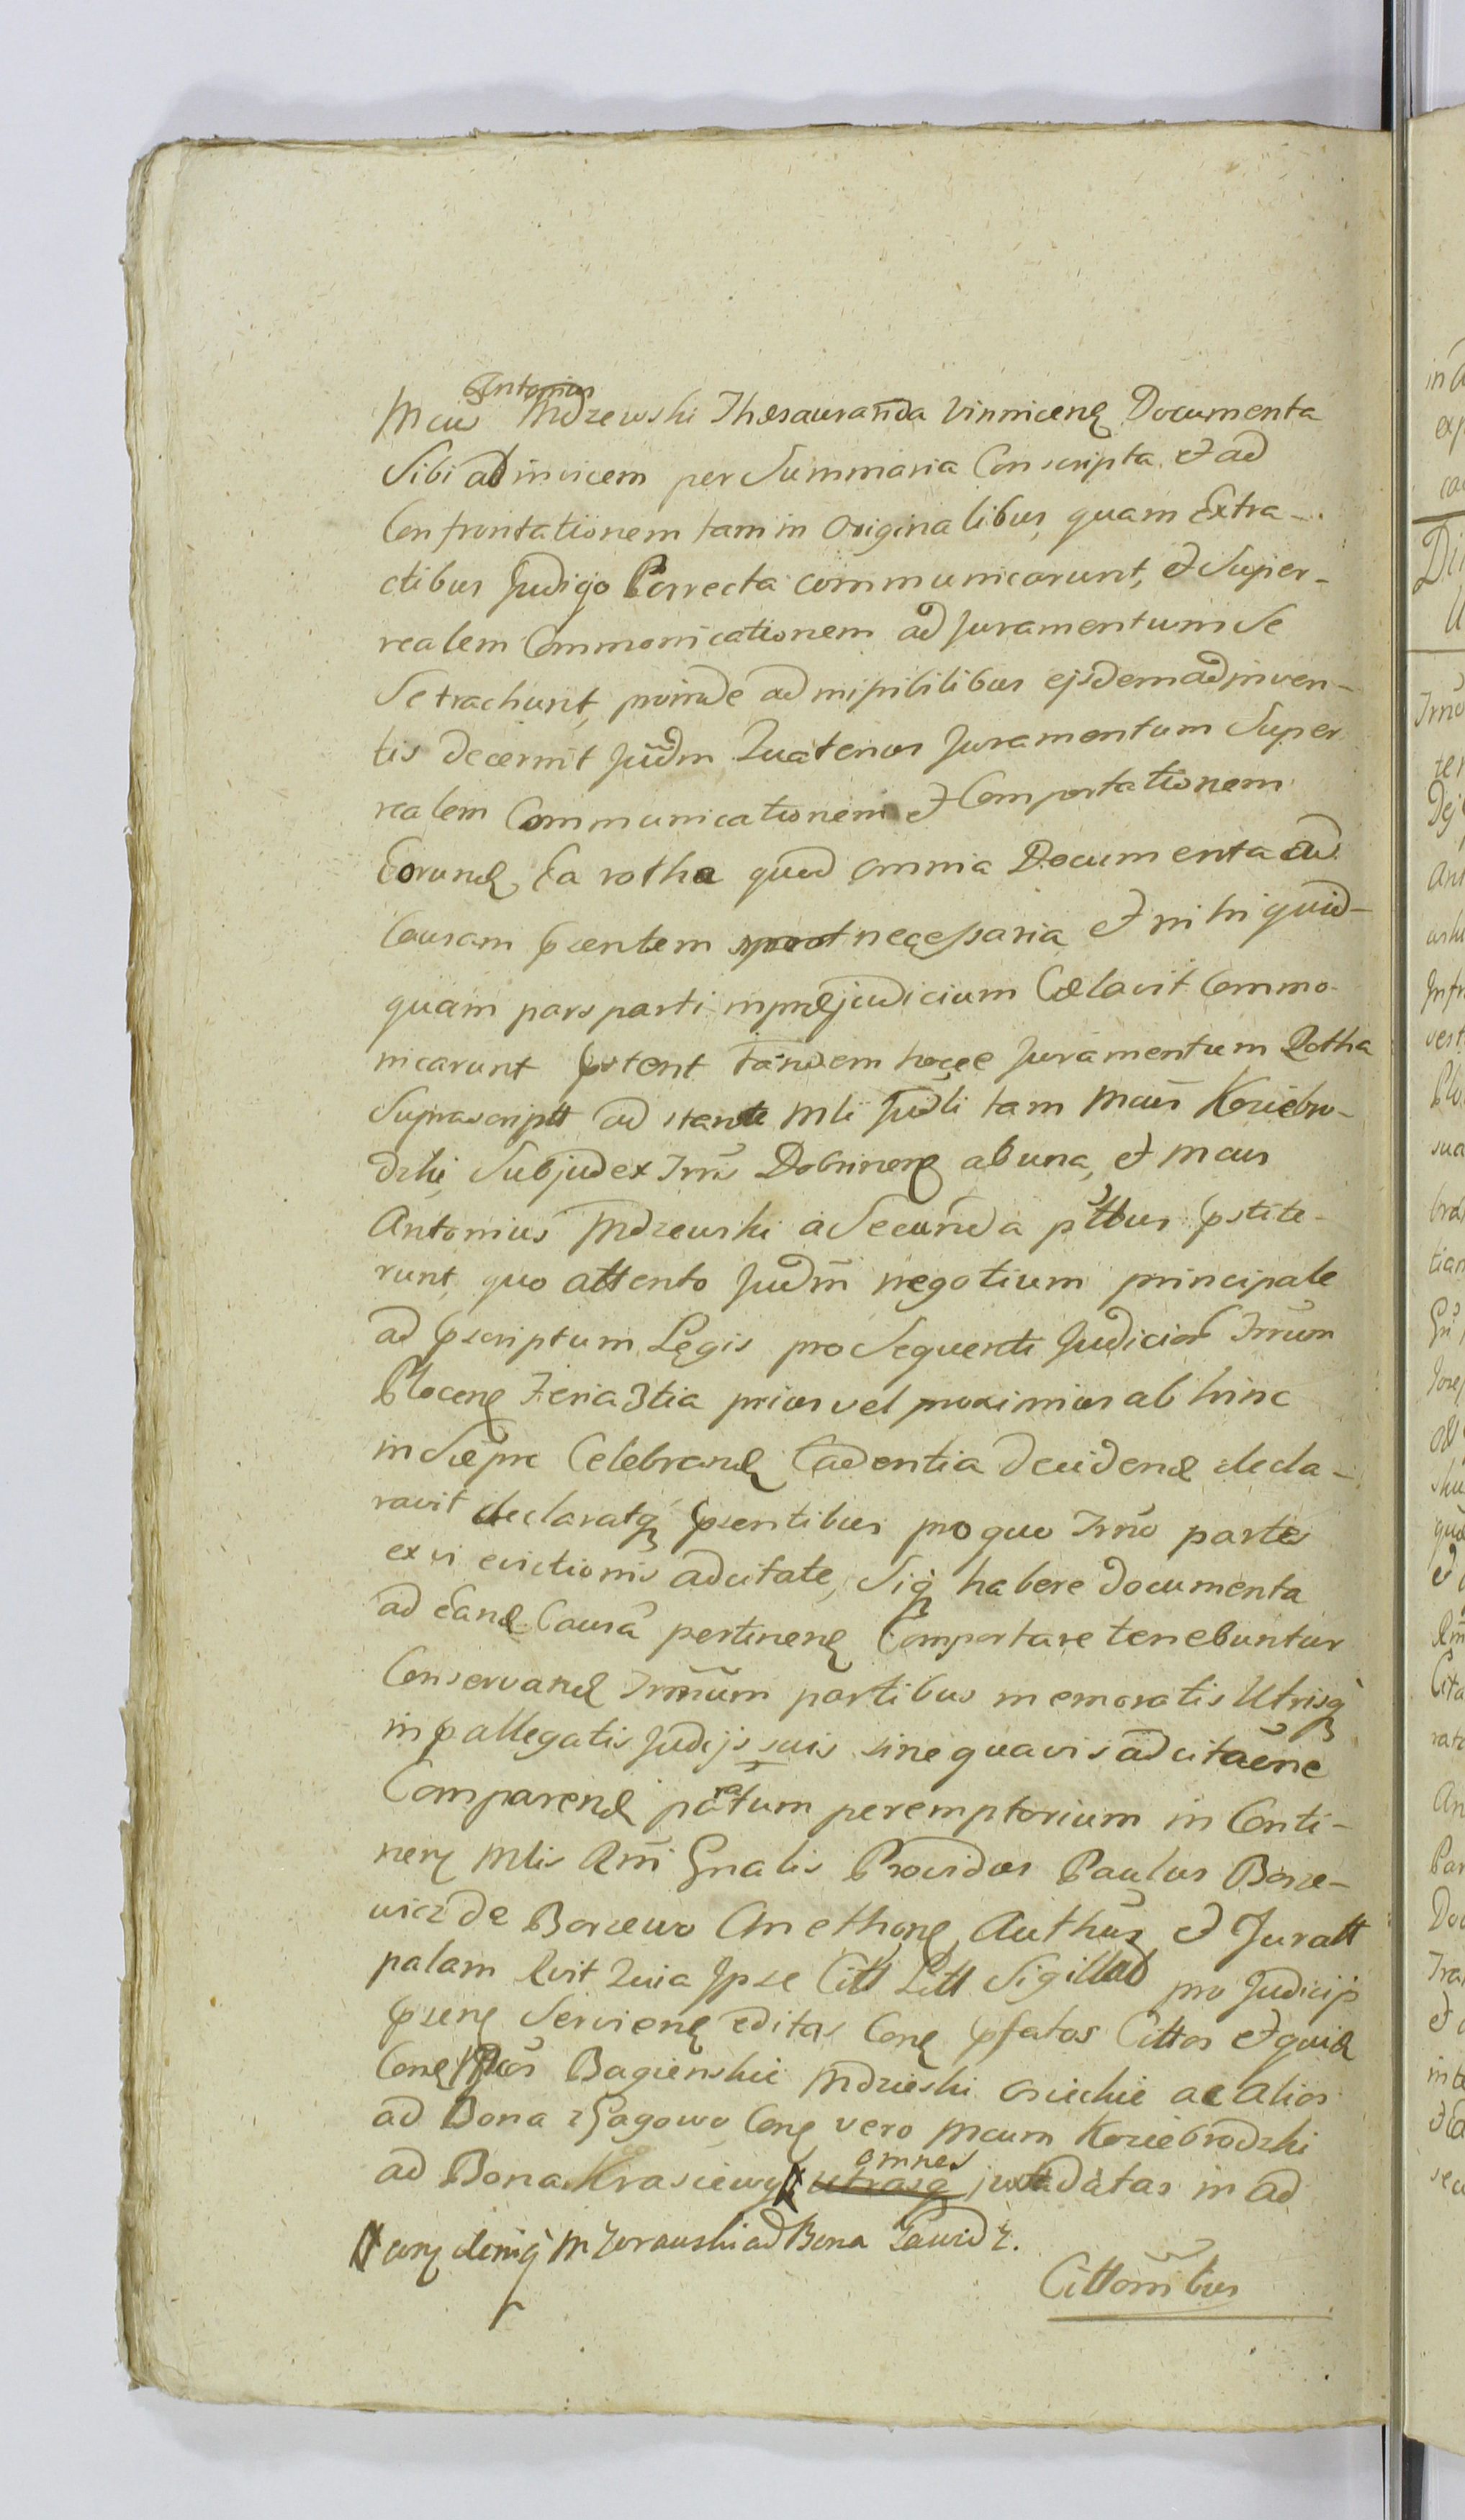 Antonius
Mcus Mdzewski Thesauranda Vinnicens Documenta
Sibi ad invicem per Summaria Conscripta et ad
Confrontationem tam in Originalibus, quam Extra-
ctibus Judijo Porrecta communicarunt, et Super-
realem Commonicationem ad Juramentum Se
Se trachunt, proinde admissibilibus ejsdem adjnven-
tis decernit Judm Quatenus Juramentum Super
realem Communicationem et Comportationem
Eorund, Ea rotha quod omnia Documenta ad
Causam psentem necessaria et nihi quid-
quam pars parti in præjudicium Cælavit Commo-
nicarunt pstent tandem hocce Juramentum Rotha
Suprascriptt ad stante Mli Judli tam Mcus Koziebro-
dzki, Subjudex Trris Dobrinens ab una, et Mcus
Antonius Mdzewski a Secunda pttbus pstite-
runt, quo attento Judm negotium principale
ad pscriptum Legis pro Sequenti Judicior Trrum
Plocens Feria 3tia prius vel proximius ab hinc
in Siepre Celebrand Cadentia decidend decla-
ravit declaratq psentibus pro quo Trno partes
ex vi evictionis adcitate, Siq habere documenta
ad Eand Causã pertinens Comportare tenebuntur
Conservand Trmnum partibus memoratis Utrisq
in pallegatis Judijs suis sine quavis adcitaõne
Comparend paratum peremptorium in Conti-
nen Mlis Rmi Gnalis Providus Paulus Borze-
wicz de Borzewo Anethons, Authus et Juratt
palam Rvit Quia Ipse Citt Litt Sigillad pro Judicijs
psens Serviens editas Cons pfatos Cittos et quid
Cons Bagienskie Mdzieski osieckie ac alios
ad Bona Gagowo Cons vero Mcum Koziebrodzki
omnes
ad Bona Krasiewo utrasq juxta datas in ad
cons deniq M Zurawski ad Bona Zawidz.
Cittonibus